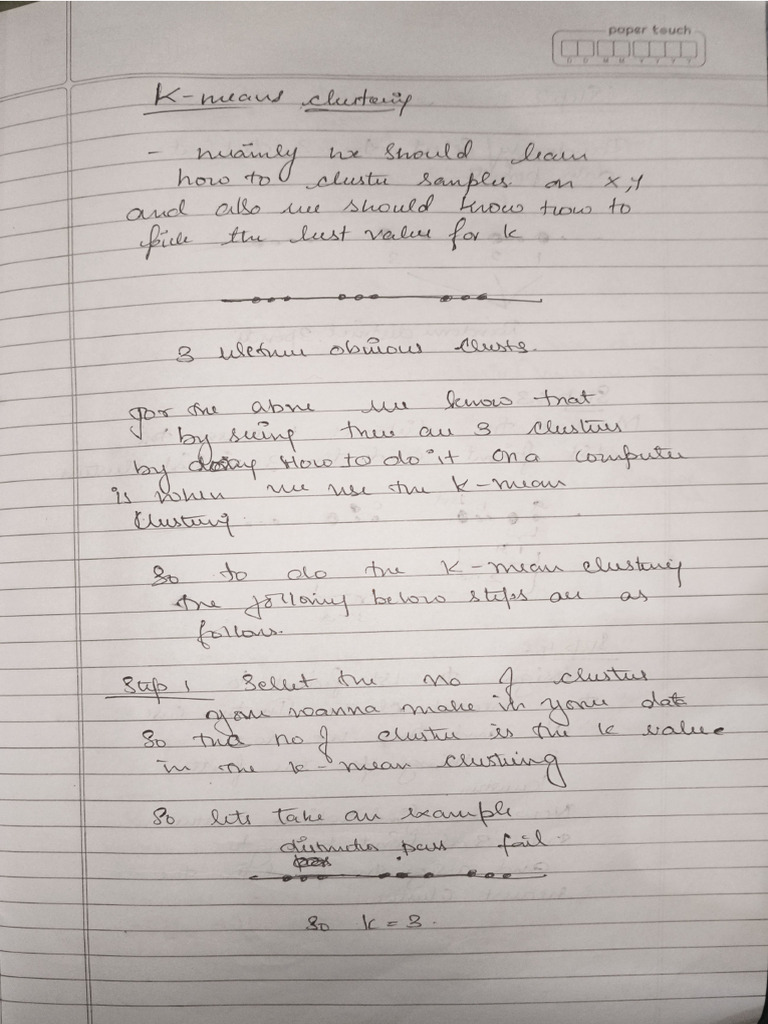 paper touch
D D M M Y Y Y Y
K-means clustering
- mainly we should learn
how to cluster samples on x,y
and also we should know how to
pick the best value for k
3 obvious clusts.
for the above we know that
by seing there are 3 clusters
by How to do it on a computer
is when we use the k-mean
clustering.
So to do the k-mean clustering
the following below steps are as
follows.
Step 1 Select the no of cluster
you wanna make in your data
So the no of cluster is the k value
in the k-mean clustering
So lets take an example
distinction pass fail.
So k = 3.